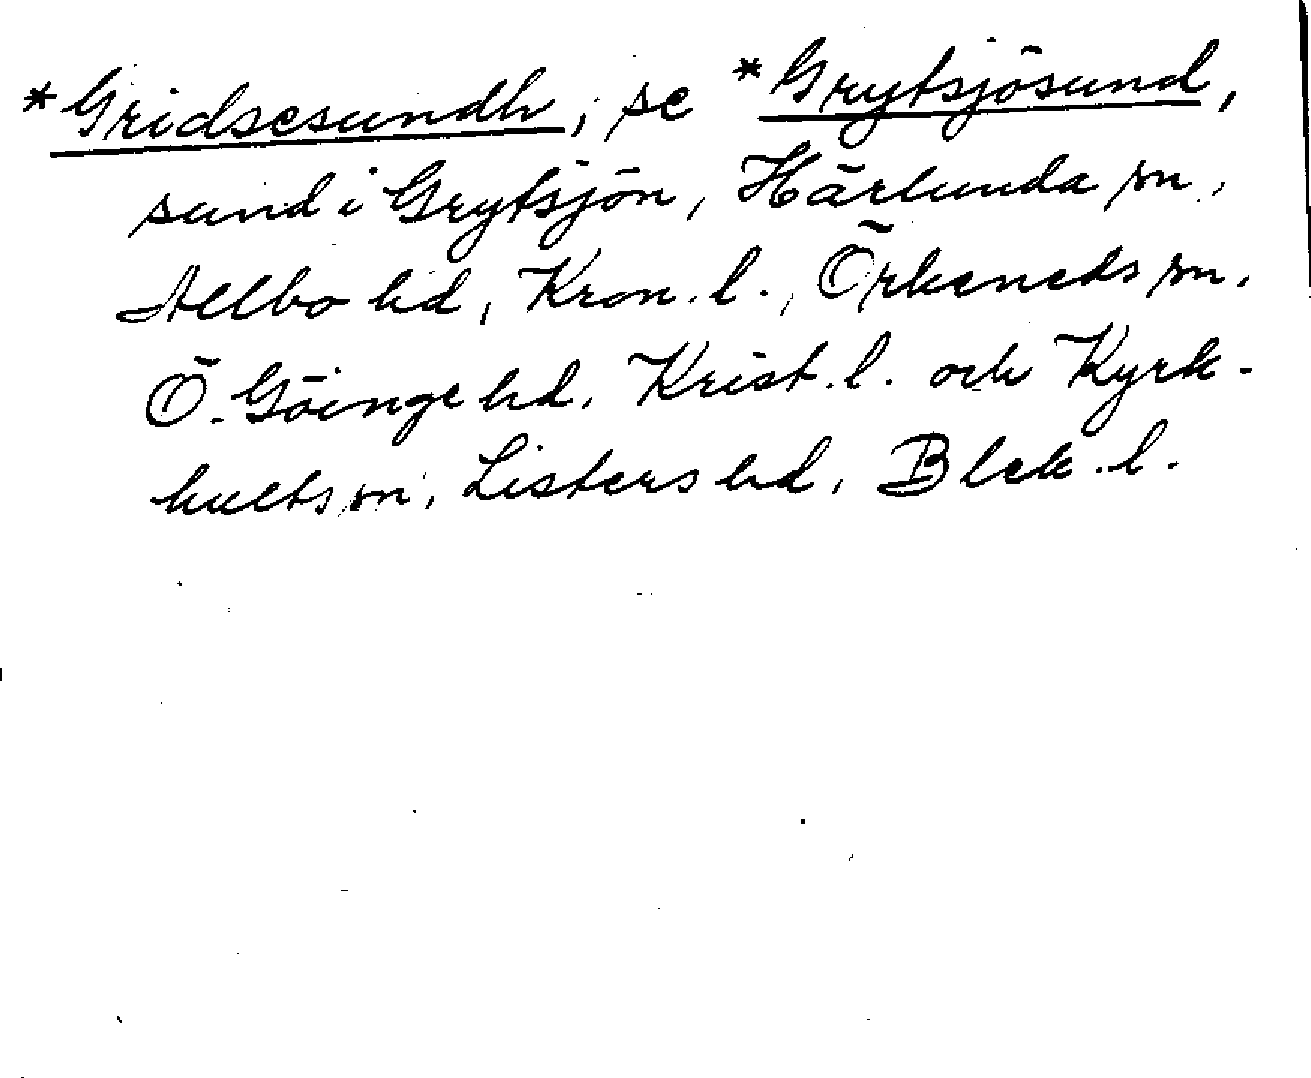 *Gridsesundh, se *Grytsjösund,
sund i Grytsjön, Härlunda sn,
Allbo hd, Kron. l., Örkeneds sn,
Ö. Göinge hd, Krist. l. och Kyrk-
hults sn, Listers hd, Blek. l.